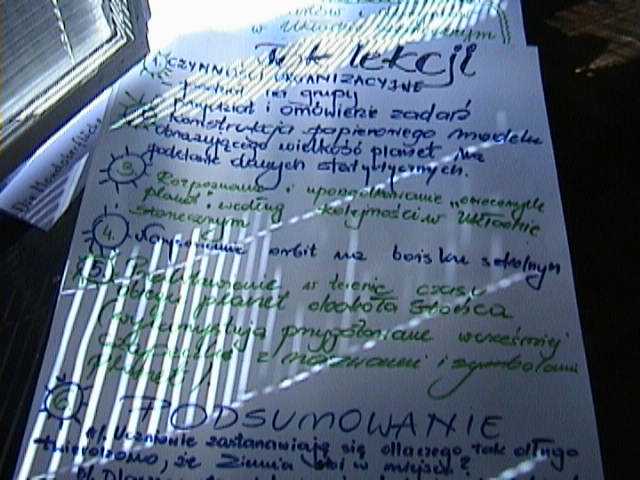 w Układzie Słonecznym
Tok lekcji
1. CZYNNOŚCI ORGANIZACYJNE
- podział na grupy
przydział i omówienie zadań
konstrukcja papierowego modelu
obrazującego wielkość planet na
podstawie danych statystycznych.
3. Rozpoznanie i uporządkowanie
planet według kolejności w Układzie
słonecznym
4. Narysowanie orbit na boisku szkolnym
5. w terenie czasu
obiegu planet dookoła Słońca
(wykorzystują przygotowane wcześniej
z nazwami i symbolami
planet)
6 PODSUMOWANIE
a/. Uczniowie zastanawiają się dlaczego tak długo
twierdzono, że Ziemia stoi w miejscu?
b/.